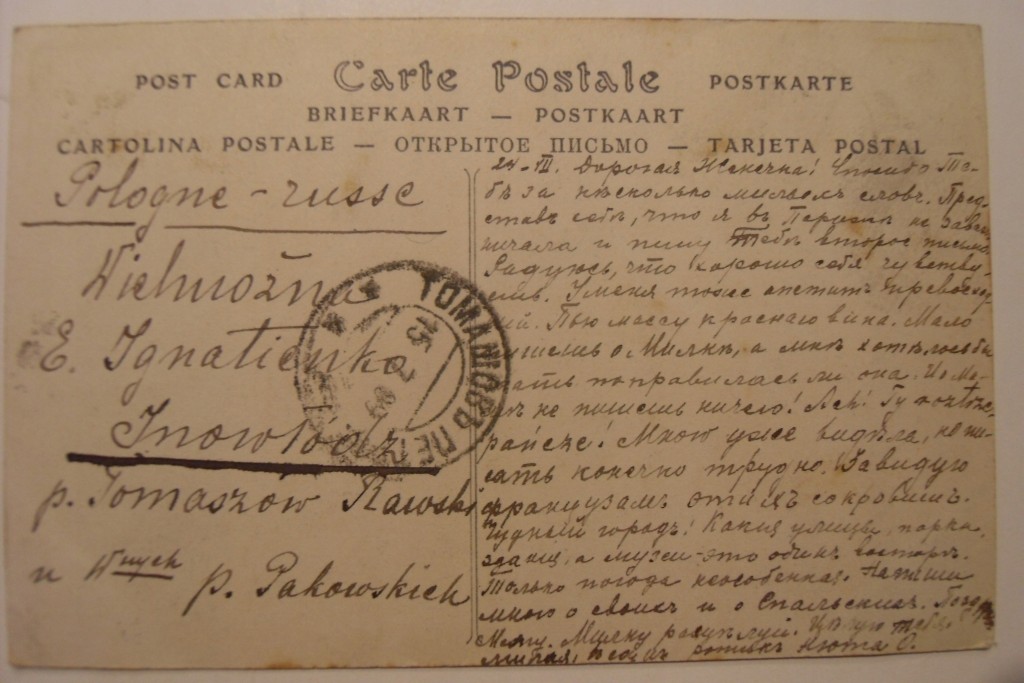 POST CARD Carte Postale POSTKARTE
BRIEFKAART — POSTKAART
CARTOLINA POSTALE — ОТКРЫТОЕ ПИСЬМО — TARJETA POSTAL
Pologne - russe
Wielmożna
E. Ignatienko
Inowłódz
p. Tomaszów Rawski
u Wnych p. Pakowskich
ТОМАШОВЪ ПЕТ
15
24-III. Дорогая Женечка! Спасибо Те-
бѣ за нѣсколько милыхъ словъ. Пред-
ставь себѣ, что я въ Парижѣ не
и пишу Тебѣ второе письмо.
Радуюсь, что хорошо себя чувству-
ешь. У меня тоже аппетитъ
Пью массу краснаго вина. Мало
пишешь о Милкѣ, а мнѣ хотѣлось бы
знать поправилась ли она. О
не пишешь ничего! Ach!
Много уже видѣла, но пи-
сать конечно трудно. Завидую
французамъ этихъ сокровищъ.
Чудный городъ! Какія улицы, парки,
зданія, а музеи - это одинъ восторгъ.
Только погода неособенная. Напиши
много о своихъ и о Спальскихъ.
Милку расцѣлуй. Цѣлую тебя,
милая, Нюта О.